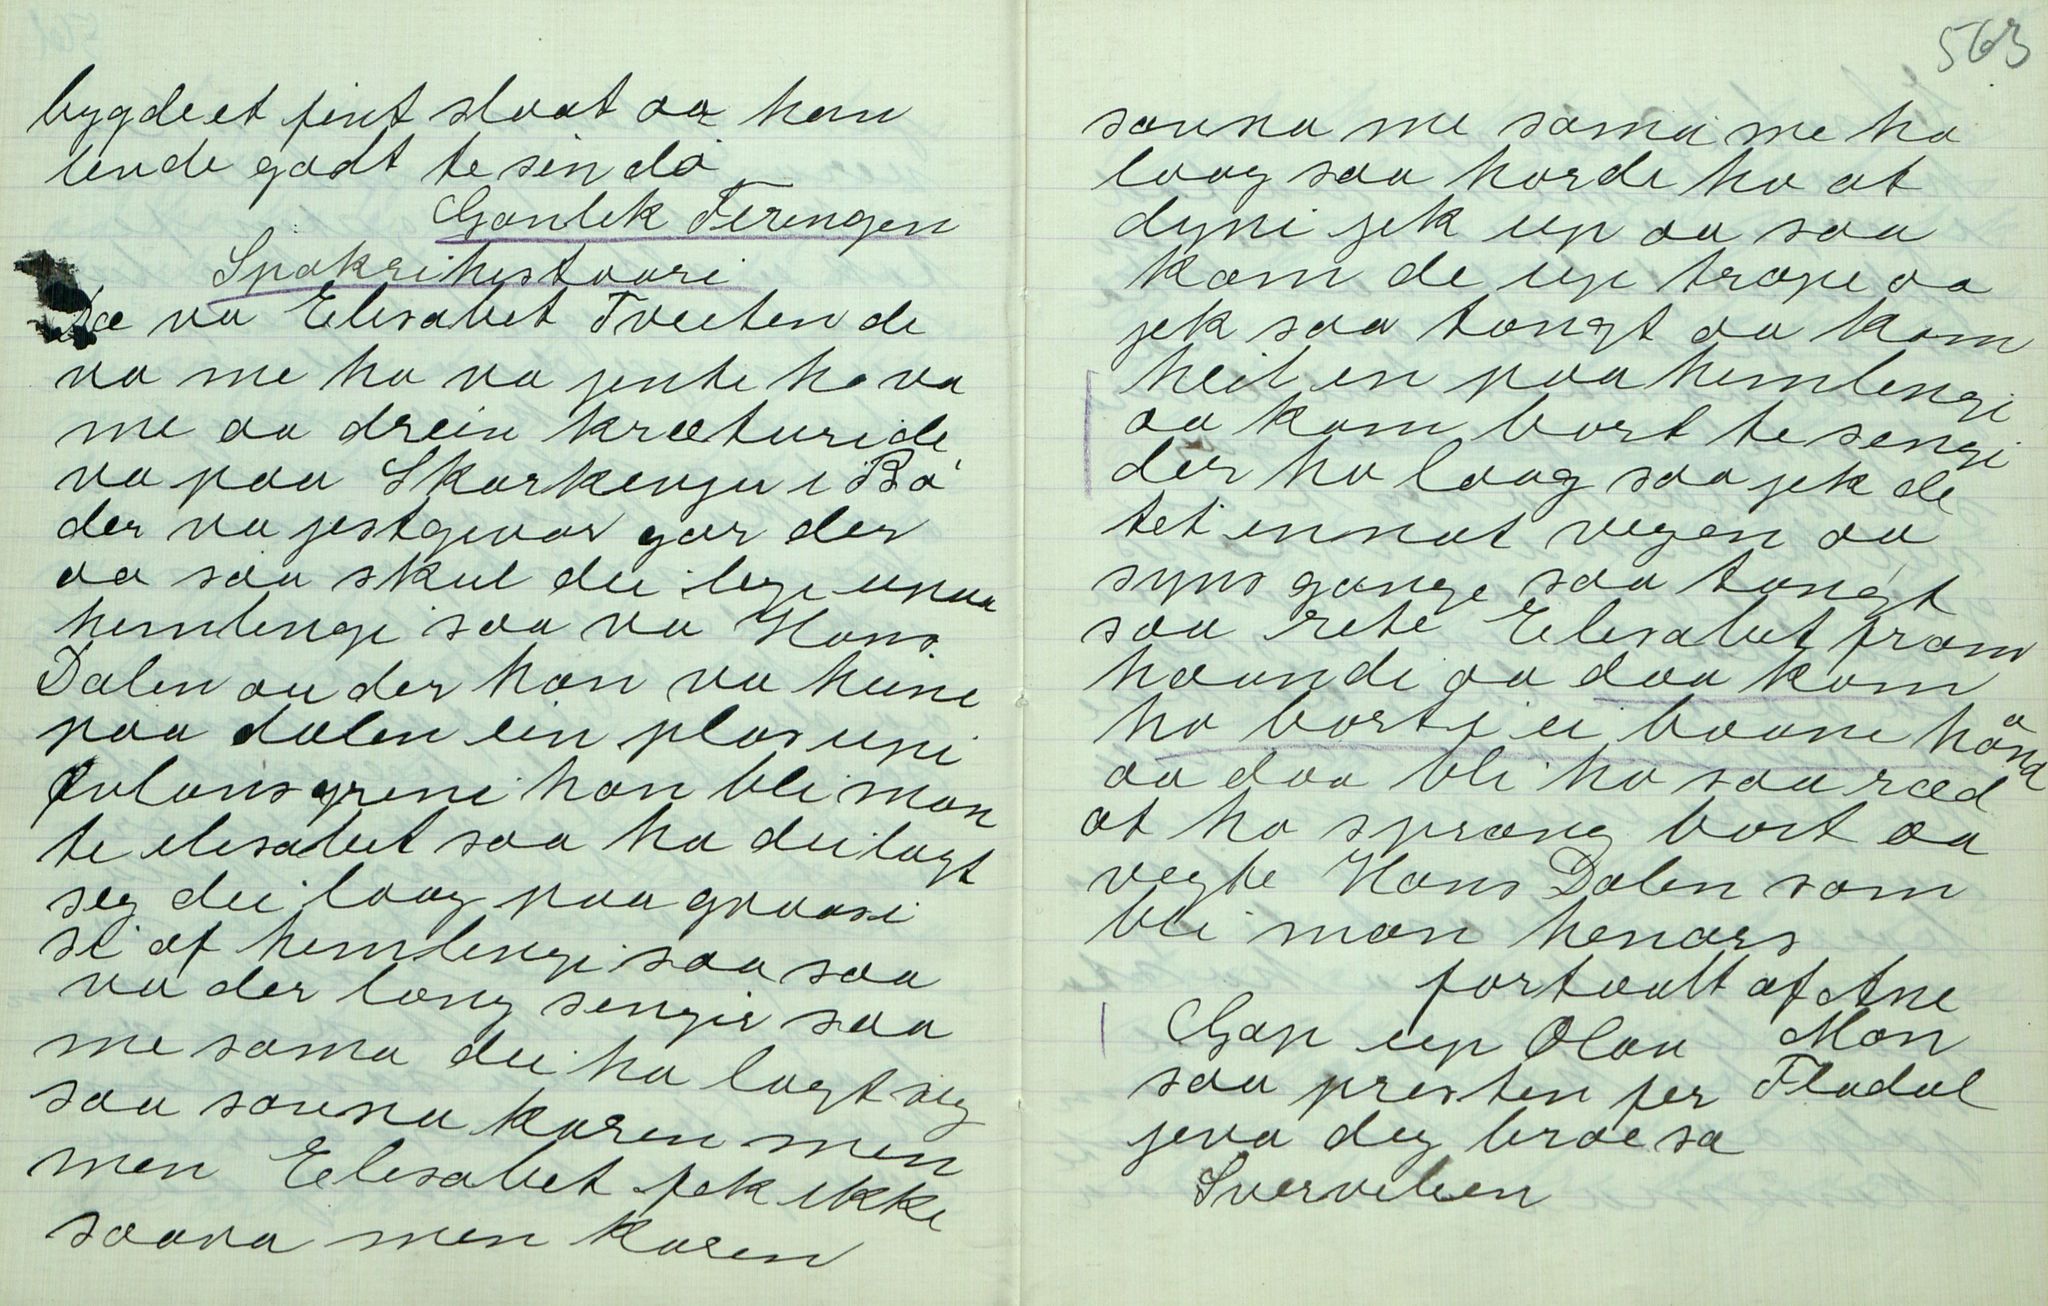 bygde et fint slaat aa han
levde godt te sin dö
Gonlek Feringen
Spøkrihistaari
Dæ va Elisabet Tveiten de
va me ho va jente ho va
me aa drein kræturi de
va paa Skarkenju i Bö
der va jestgivar gar der
aa saa skul dei lige uppaa
hemlengi saa va Hans
Dalen au der han va heime
paa dalen ein plas uppi
han blei man
te elisabet saa ha dei lagt
seg dei laag paa graasi
si af hemlengi saa saa
va der long sengir saa
me sama dei ha lagt seg
saa souna karen men
men Elisabet fek ikke
saava men karen
563
souna me sama me ho
laag saa horde ho at
dyni jek up aa saa
kom de up trape aa
jek saa tongt aa kom
heil en paa hemlengi
aa kom bort te sengi
der ho laag saa jek de
tet innat vegen aa
syns gange saa tongt
saa rete Elisabet fram
haandi aa daa kom
ho bort i ei baane hånd
aa daa blei ho saa ræd
at ho sprang bort aa
vegte Hans Dalen som
blei man henars
fortaalt af Ane
Mon
Flodal
Gap up Olav
saa presten fer
jeva deg broe sa
Svervilien